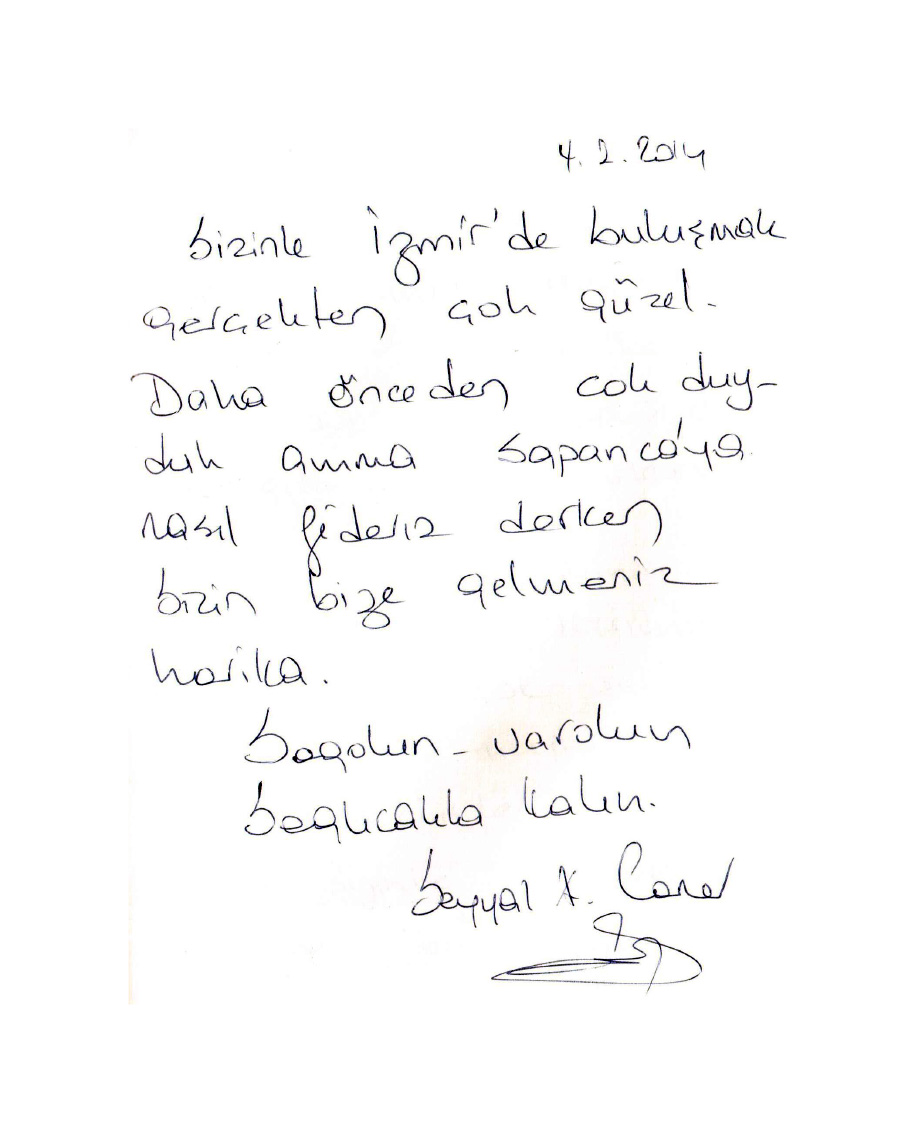 4.2.2014
Sizinle İzmir'de buluşmak
gerçekten çok güzel.
Daha önceden çok duy-
duk amma Sapanca'ya
nasıl gideriz derken
sizin bize gelmeniz
harika.
Sagolun - varolun
Saglıcakla kalın.
Seyyal